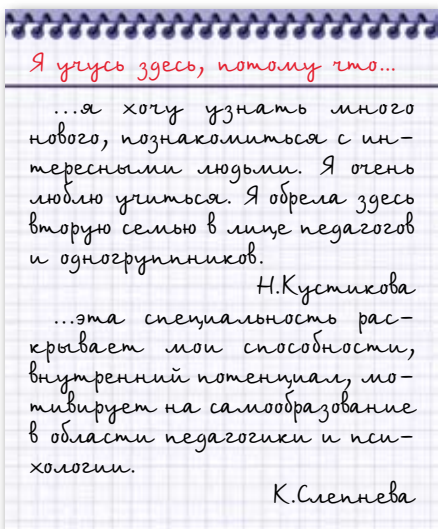 Я учусь здесь, потому что...
...я хочу узнать много
нового, познакомиться с ин-
тересными людьми. Я очень
люблю учиться. Я обрела здесь
вторую семью в лице педагогов
и одногруппников.
Н.Кустикова
...эта специальность рас-
крывает мои способности,
внутренний потенциал, мо-
тивирует на самообразование
в области педагогики и пси-
хологии.
К.Слепнева